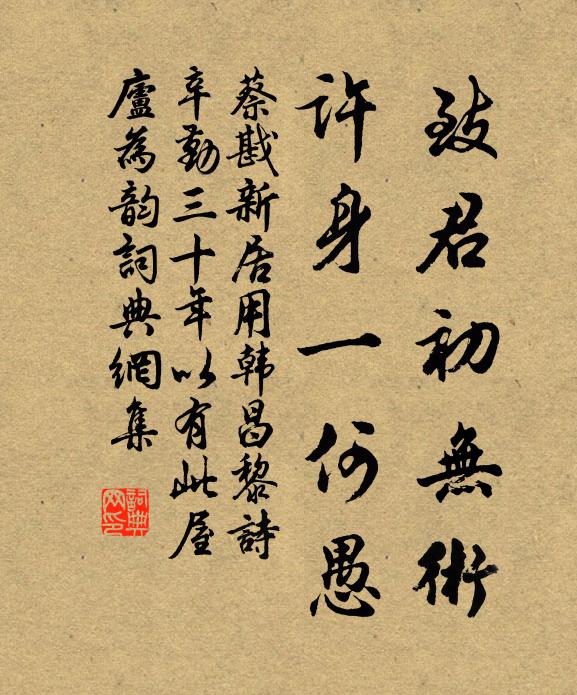 致君初無術
許身一何愚
蔡戡新居用韩昌黎詩
辛勤三十年以有此屋
廬為韵詞典網集
詞典
网印